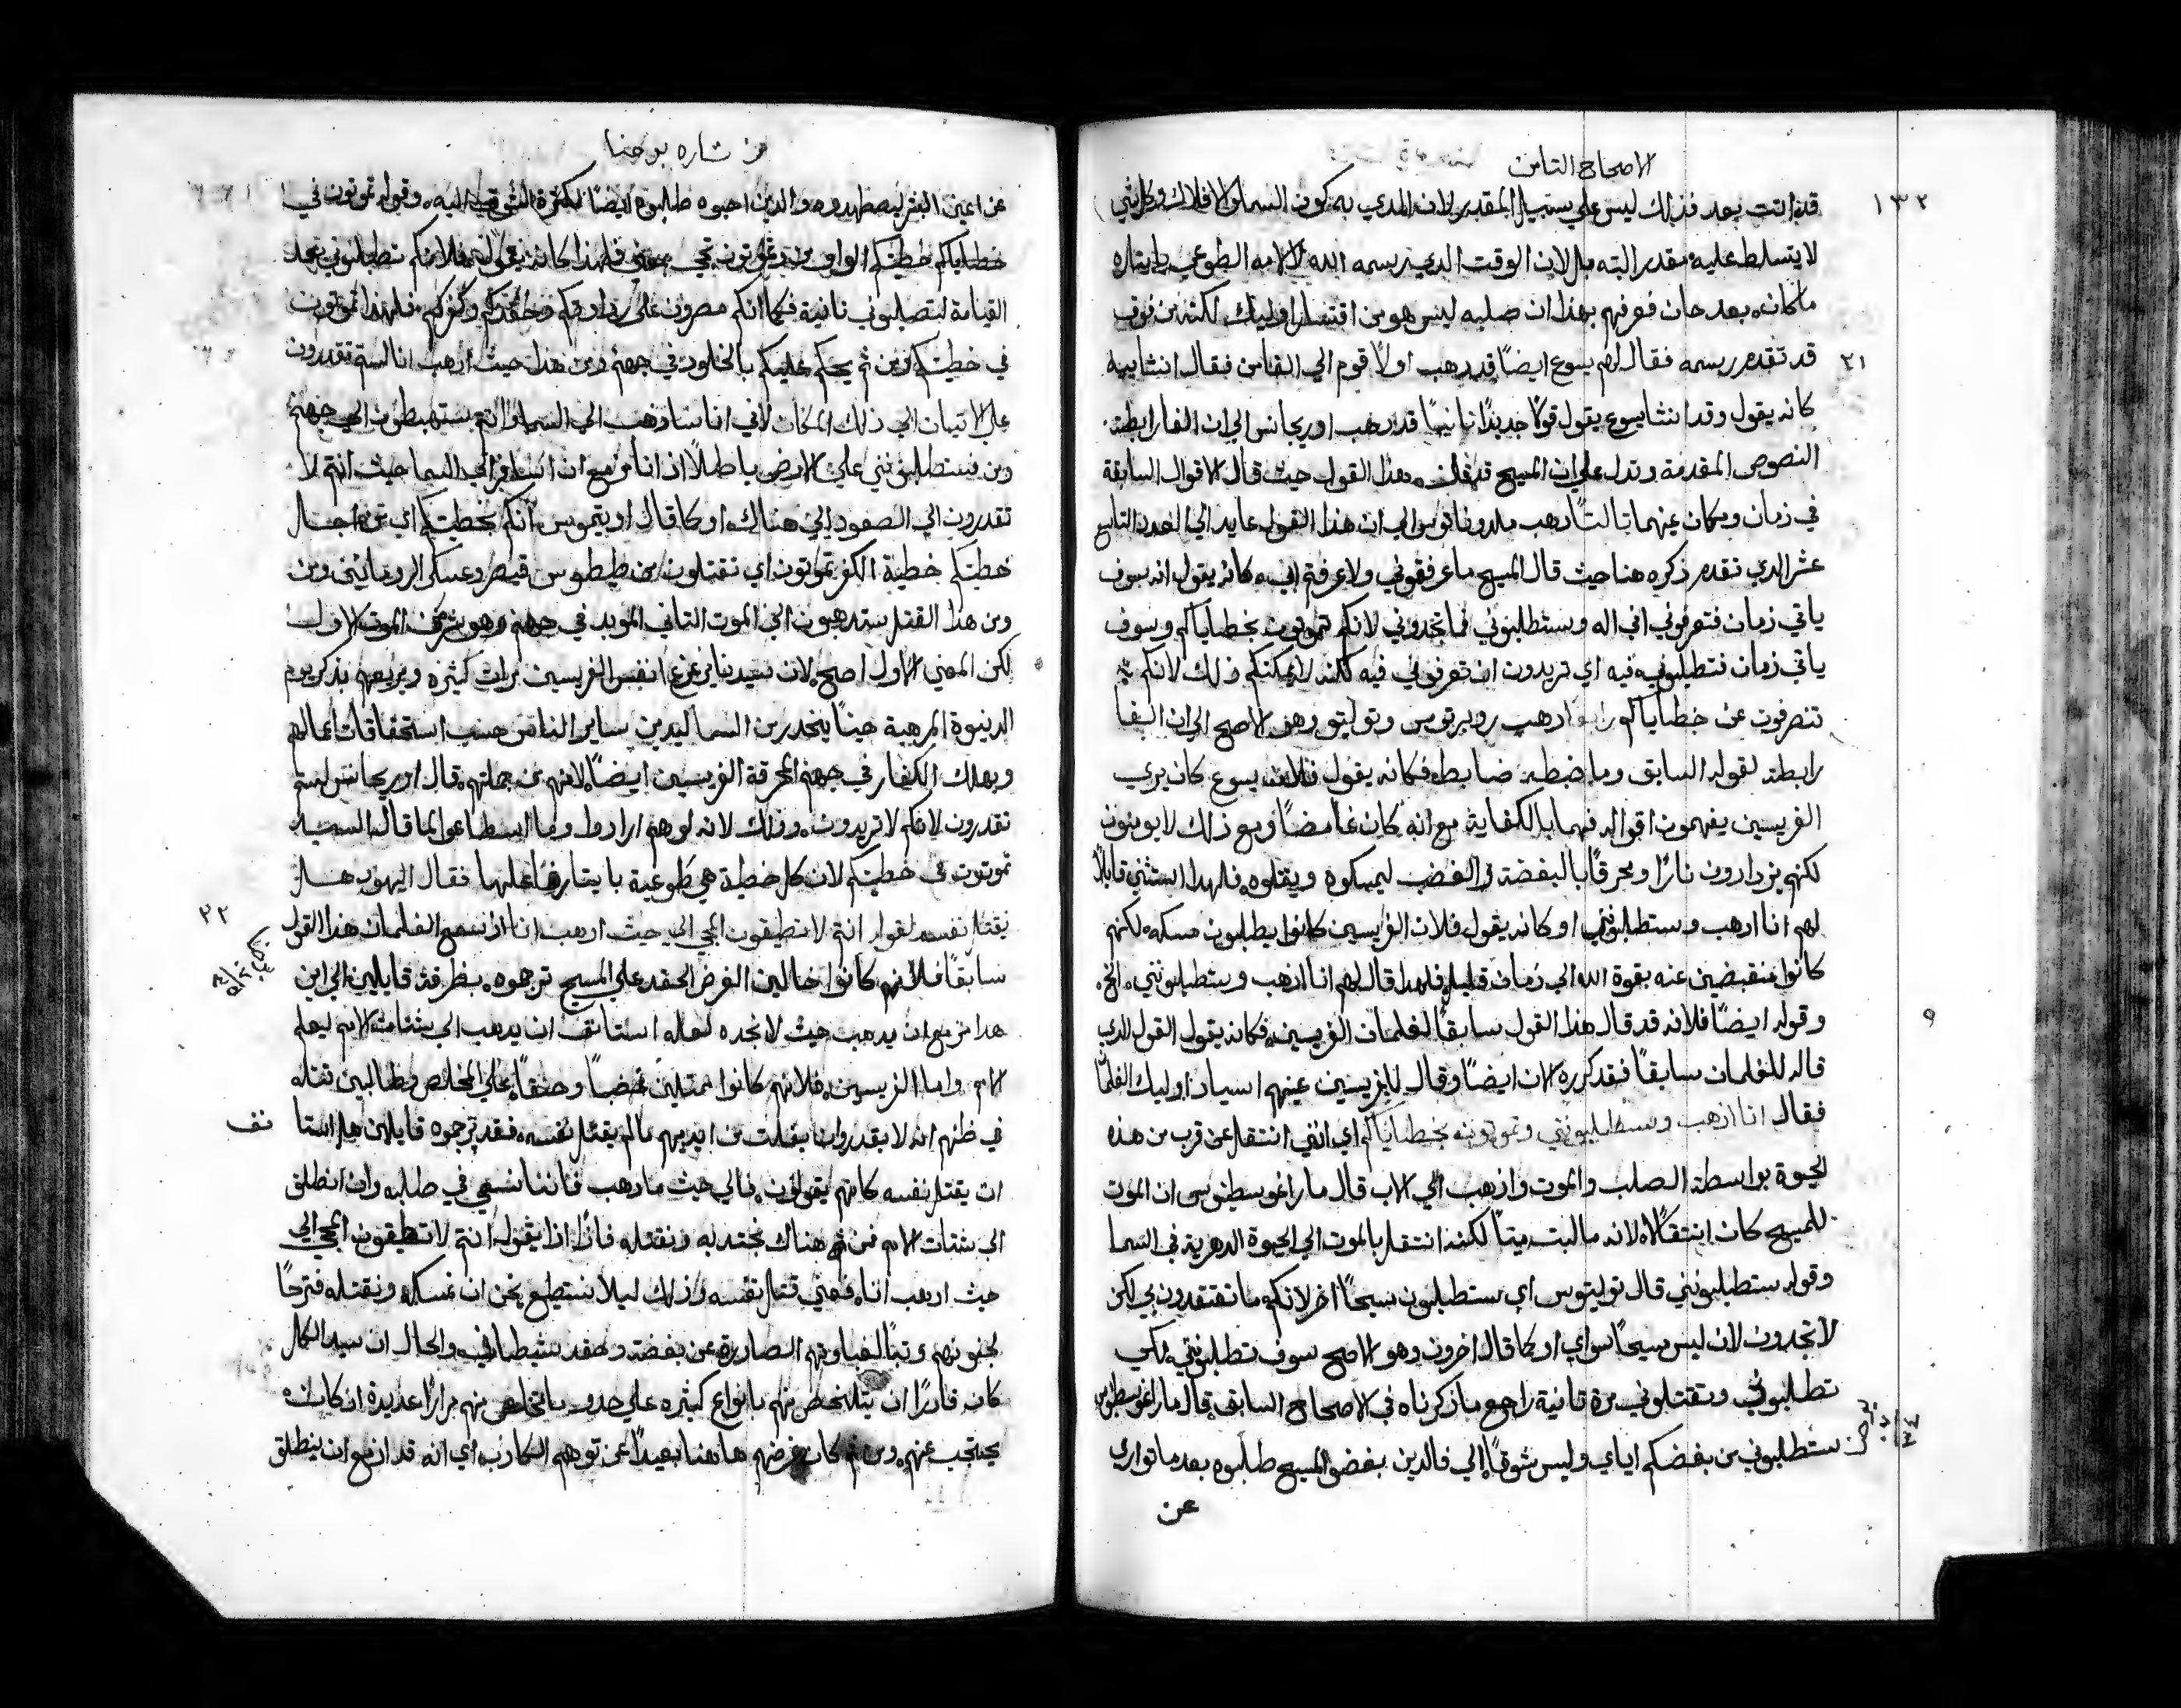 الاصحاح التامن
١٣٢
قد اتت بعد فذلك ليس علي سبيل المقدر لان الذي به كون السما والافلاك وكل شي
لا يتسلط عليه مقدر البته بل لان الوقت الدي رسمه الله لالامه الطوعي بايتاره
ماكان بعد حان فعرفهم بهذا ان صلبه ليس هو من اقتسار اوليك لكنه من فوق
٢١ قد تقدم رسمه فقال لهم يسوع ايضًا قد دهب اولًا قوم الي الفا من فقال انشاييه
كانه يقول وقد انشا يسوع يقول قولًا جديدًا تانيًا قد دهب اوريجانس الي ان الفا رابطة
النصوص المقدمة وتدل علي ان المسيح قد قال هذا القول حيث قال الاقوال السابقة
في زمان ومكان عينهما تالتًا دهب ملدوناتوس الي ان هذا القول عايد الي العدد التاسع
عشر الدي تقدم ذكره هنا حيث قال المسيح ما عرفتوني ولا عرفتم ابي كانه يقول انه سوف
ياتي زمان فتعرفوني اني اله وستطلبوني فما تجدوني لانكم تموتون بخطاياكم وسوف
ياتي زمان تتطلبوني فيه اي تريدون ان تعرفوني فيه لكنه لا يمكنكم ذلك لانكم
تنصرفون عن خطاياكم رابعًا دهب روبرتوس وتوليتوس وهو الاصح الي ان الفا
رابطة لقوله السابق وما ضبطه ضابط فكانه يقول فلان يسوع كان يري
الفريسين يفهمون اقواله فهما بالكفاية مع انه كان غامضًا ومع ذلك لا يومنون
لكنهم يزدادون نارًا ومحرقًا بالبغضة والغضب ليمسكوه ويقتلوه فلهدا استثني قايلًا
لهم انا ادهب وستطلبونني او كانه يقول فلان الفريسين كانوا يطلبون مسكه لكنهم
كانوا منقبضين عنه بقوة الله الي زمان قليل فلهدا قال لهم انا ادهب وستطلبونني الخ
وقوله ايضًا فلانه قد قال هذا القول سابقًا لغلمان الفريسين فكانه يقول القول الدي
قاله للغلمان سابقًا فقد كرره الان ايضًا وقال للفريسين عينهم اسياد اوليك الغلمان
فقال انا ادهب وستطلبونني وتموتون بخطاياكم اي انني انتقل عن قرب من هذه
الحيوة بواسطة الصلب والموت وادهب الي الاب قال مار اغوسطينوس ان الموت
للمسيح كان انتقالًا لانه ما لبت ميتًا لكنه انتقل بالموت الي الحيوة الدهرية في السما
وقوله ستطلبونني قال توليتوس اي ستطلبون مسيحًا اخر لانكم ما تعتقدون بي لكن
لا تجدون لان ليس مسيحًا سواي او كما قال اخرون وهو الاصح سوف تطلبونني لكي
تطلبوني وتقتلوني مرة تانية راجع ما ذكرناه في الاصحاح السابق قال مار اغوسطينوس
ستطلبوني من بغضكم اياي وليس شوقًا الي فالذين بغضوا المسيح طلبوه بعد ما تواري
عن
من بشاره يوحنا
عن اعين البشر ليضطهدوه والدين احبوه طلبوه ايضًا لكثرة الشوق اليه وقوله تموتون في
خطاياكم خطيتكم
القيامة لتصلبوني تانية فكما انكم مصرون علي رداوتكم وحقدكم وكفركم فلهذا تموتون
في خطيتكم ومن ثم يحكم عليكم بالخلود في جهنم ومن هدا حيث ادهب انا لستم تقدرون
علي الاتيان الي ذلك المكان لاني انا سادهب الي السما وانتم ستهبطون الي جهنم
ومن ستطلبونني علي الارض باطلًا اذ انا مزمع ان اسافر الي السما حيث انتم لا
تقدرون الي الصعود الي هناك او كما قال اوتيموس انكم بخطيتكم اي من اجل
خطيتكم خطية الكفر تموتون اي تقتلون من طيطوس قيصر وعسكر الرومانيين ومن
ومن هذا القتل ستدهبون الي الموت التاني الموبد في جهنم وهو الموت الاول
لكن المعني الاول اصح لان سيدنا يزعزع انفس الفريسين مرات كثيره ويريعهم بذكر يوم
الدينونة المرهبة حينًا ينحدر من السما ليدين ساير الناس حسب استحقاقات اعمالهم
ويهلك الكفار في جهنم المحرقة الفريسين ايضًا لانهم من جملتهم قال اوريجانس لستم
تقدرون لانكم لا تريدون وذلك لانه لو هم ارادوا وما استطاعوا لما قال السيد
تموتون في خطيتكم لان كل خطية هي طوعية بايتار فاعلها فقال اليهود هل
٢٢ يقتل نفسه لقوله انتم لا تطيقون المجي الي حيث ادهب انا اد سمع الغلمان هذا القول
سابقًا فلانهم كانوا خالين الغرض الحقد علي المسيح ترجموه بظرافة قايلين الي اين
هذا مزمع ان يدهب حيث لا نجده لعله استانف ان يدهب الي شتات الامم ليعلم
الامم واما الفريسين فلانهم كانوا ممتلين غضبًا وحنقًا علي المخلص وطالبين قتله
في ظنهم انه لا يقدر ان يفلت من ايديهم مالم يقتل نفسه فقد ترجموه قايلين هل استا نف
ان يقتل نفسه كانهم يقولون فالي حيث ما دهب فاننا نسعي في طلبه وان انطلق
الي شتات الامم فمن ثم هناك نجتد به ونقتله فاذًا اذا يقول انتم لا تطيقون المجي الي
حيث ادهب انا فعني قتل نفسه وذلك ليلا نستطيع نحن ان نمسكه ونقتله فترحًا
لجنونهم وتبًا لغباوتهم الصادرة عن بغضة وحقد شيطاني والحال ان سيد الكل
كان قادرًا ان يتخلص منهم بانواع كثيره علي حدو ما تخلص منهم مرارًا عديدة اذ كان
يحتجب عنهم ومن ثم كان غرضهم هاهنا بعيدًا عن توهم الكادب اي انه قد ازمع ان ينطلق